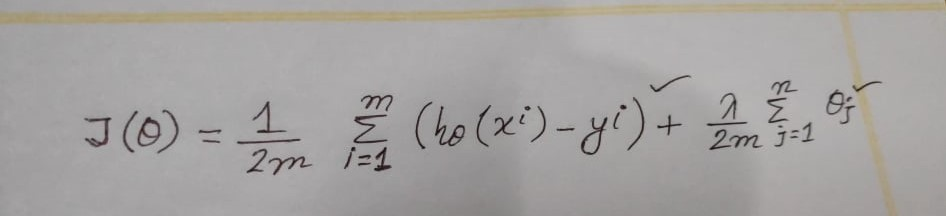 J(θ) = 1/2m Σ_{i=1}^{m} (hθ(x^i) - y^i)^✓ + λ/2m Σ_{j=1}^{n} θj^✓